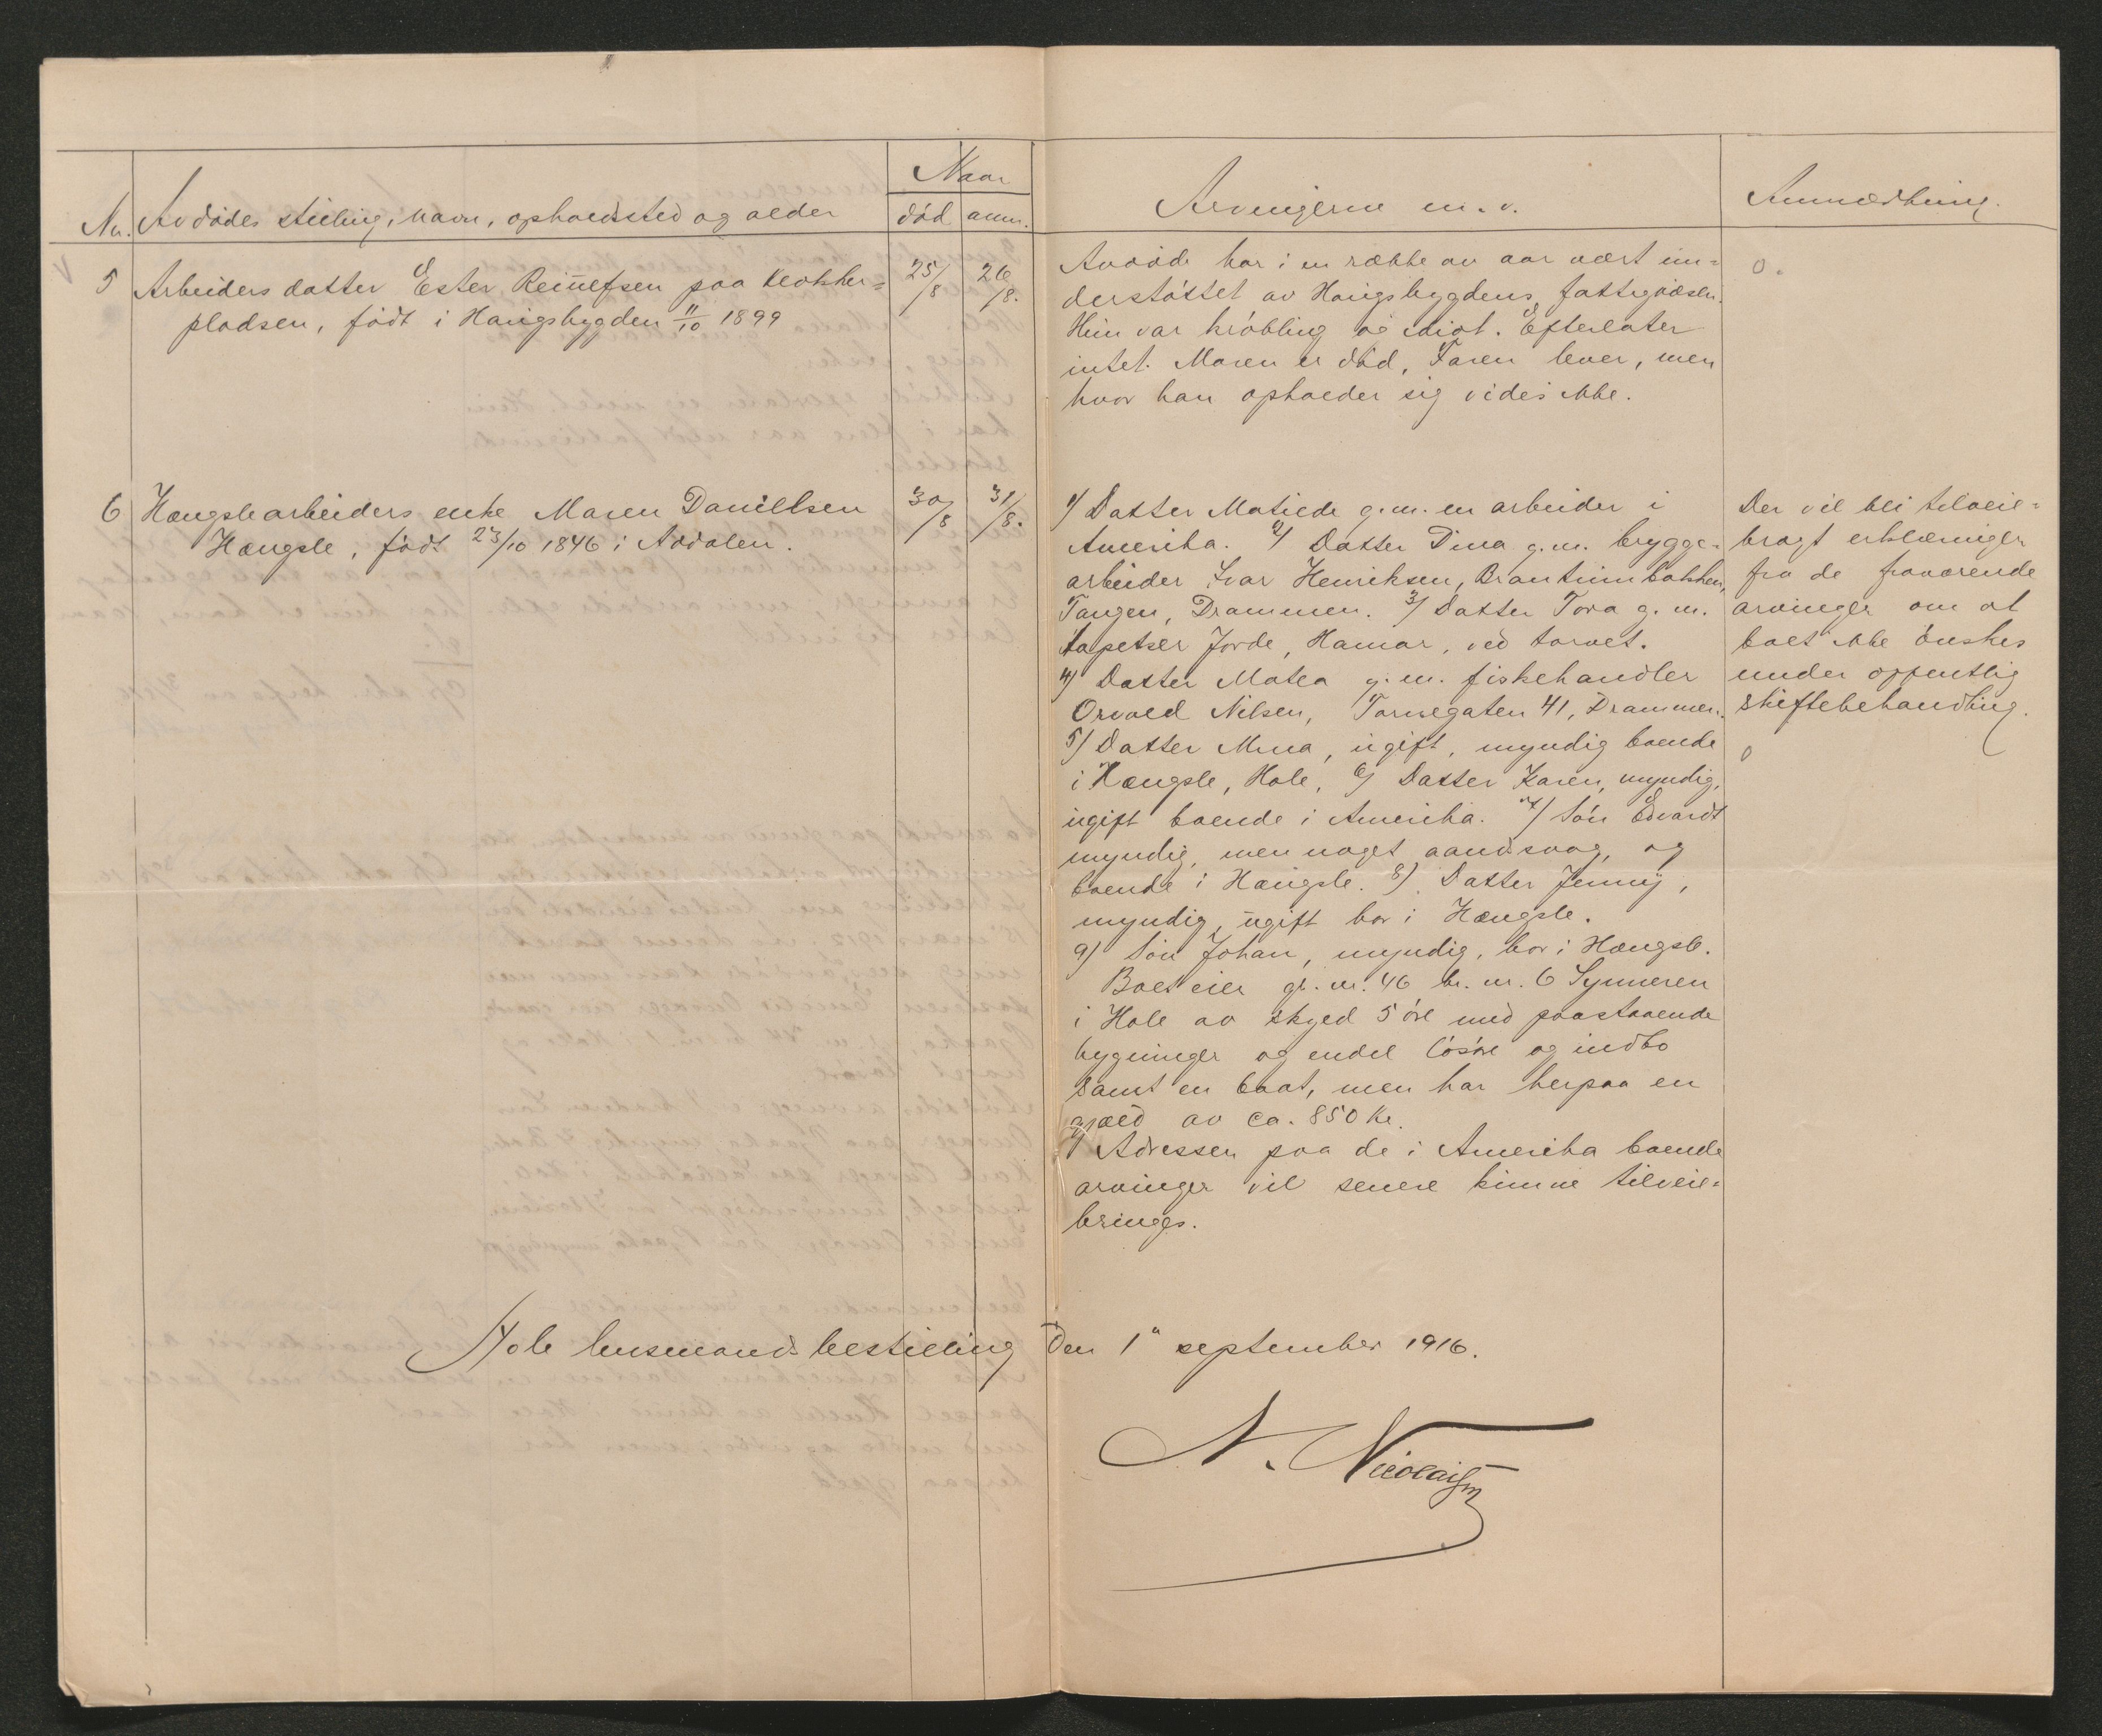 Naar
Nr. Avdödes stilling, navn, opholdssted og alder
död anm.
Arvingerne m. v.
Anmærkning.
5 Arbeiders datter Ester Reinelfsen paa Klokker=
pladsen, född i Haugsbygden 11/10 1899
25/8 26/8.
Avdöde har i en række av aar vært un=
derstöttet av Haugsbygdens fattigvæsen.
Hun var kröbling og idiot. Efterlater
intet. Moren er död, Faren lever, men
hvor han opholder sig vides ikke.
0.
6 Hængslearbeiders enke Maren Daniellsen
Hængsle, född 23/10 1846 i Aadalen.
30/8 31/8.
1) Datter Matilde g.m. en arbeider i
Amerika. 2) Datter Dina g.m. brygge=
arbeider Ivar Henriksen, Brantenbakken,
Tangen, Drammen. 3) Datter Tora g. m.
tapetser Jorde, Hamar, ved torvet.
4) Datter Matea g. m. fiskehandler
Orvald Nilsen, Tornegaten 41, Drammen.
5) Datter Mina, ugift, myndig boende
i Hængsle, Hole, 6) Datter Karen, myndig,
ugift boende i Amerika. 7) Sön Edvardt
myndig, men noget aandssvag, og
boende i Hængsle. 8) Datter Jenny,
myndig, ugift bor i Hængsle.
9) Sön Johan, myndig, bor i Hængsle.
Boet eier gr. nr. 46 br. nr. 6 Synneren
i Hole av skyld 5 öre med paastaaende
bygninger og endel lösöre og indbo
samt en baat, men har herpaa en
gjæld av ca. 850 Kr.
Adressen paa de i Amerika boende
arvinger vil senere kunne tilveie=
bringes.
Der vil bli tilveie=
bragt erklæringer
fra de fraværende
arvinger om at
boet ikke önskes
under offentlig
skiftebehandling.
0
Hole lensmandsbestilling den 1ª september 1916.
N. Nicolaisen